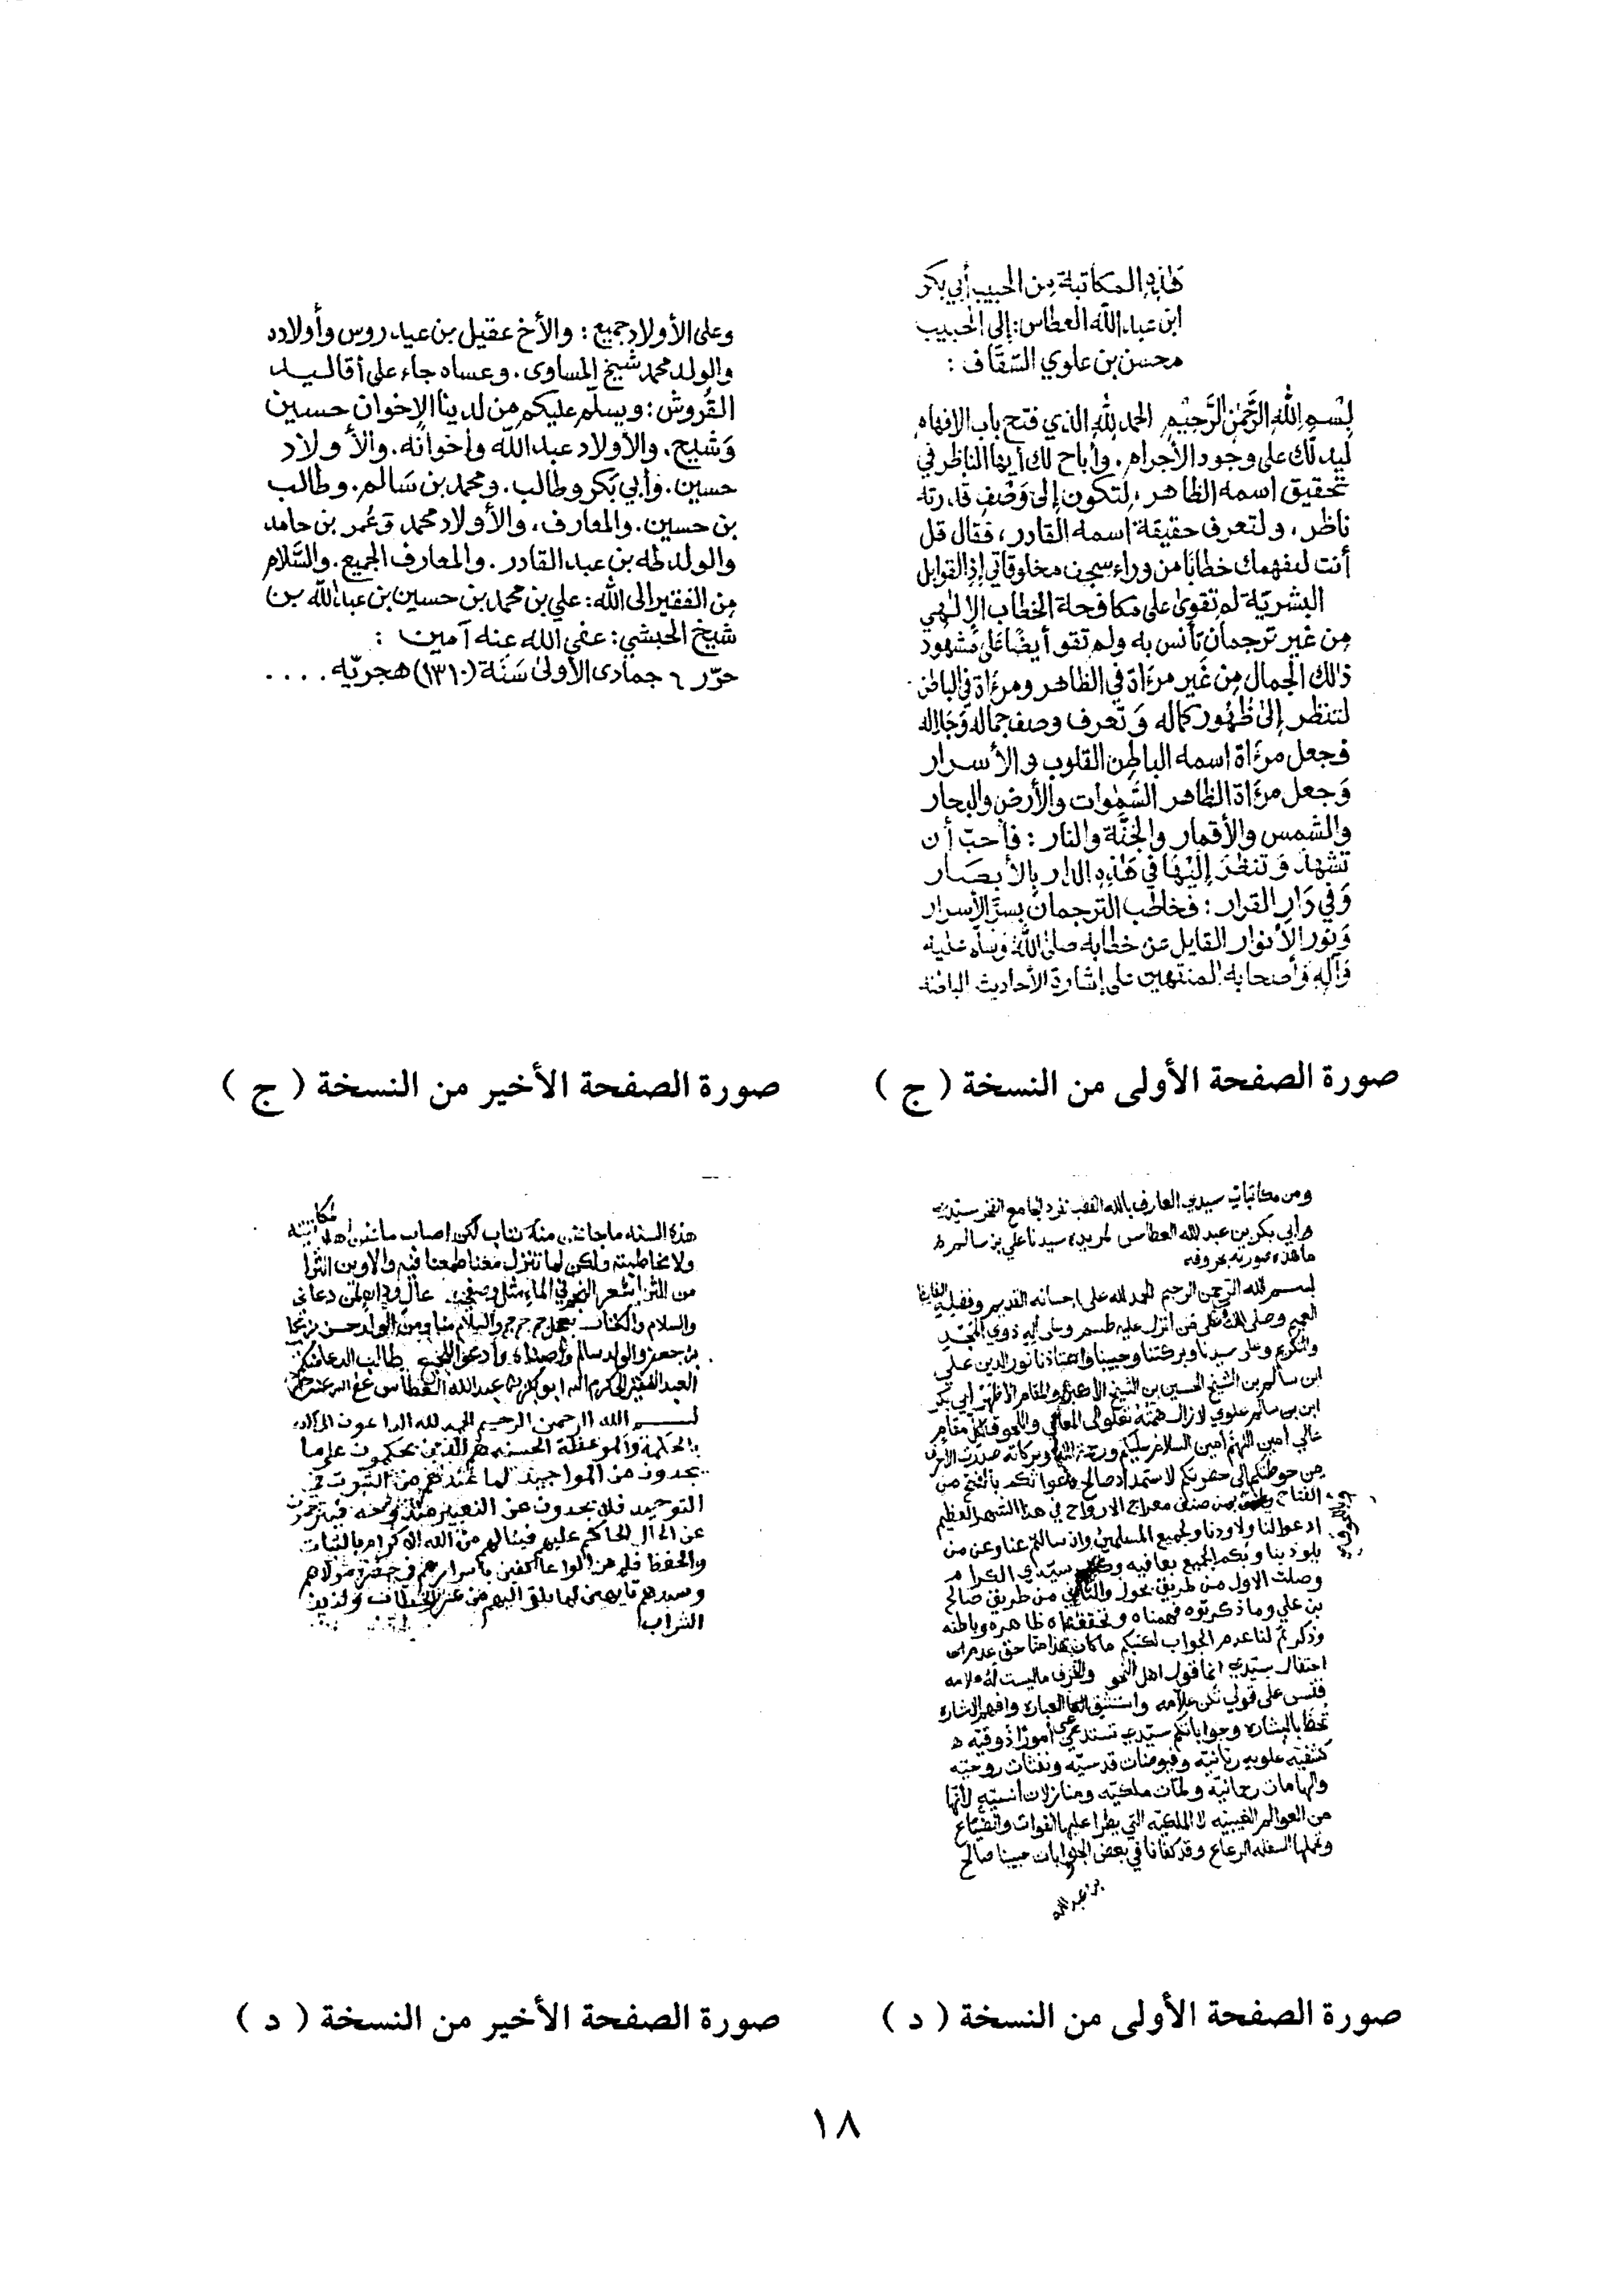 هٰذِهِ المكاتبة مِن الحبيب أبي بكر
ابن عبد الله العطاس: إلى الحبيب
محسن بن علوي السَّقَّاف :
بِسْمِ اللهِ الرَّحْمٰنِ الرَّحِيْمِ الحمد لله الذي فتح باب الإفهام
ليدلّك على وجود الأجرام. وأباح لك أيها الناظر في
تحقيق اسمه الظاهر، لِتكون إلى وَصْفِ قدرته
ناظر، ولتعرف حقيقة اسمه القادر، فقال قل
أنت لنفهمك خطابًا من وراء سجف مخلوقاتي إذ القوابل
البشريّة لم تقوىٰ على مكافحة الخطاب الإلٰهي
مِن غير ترجمان تأنس به ولم تقو أيضًا عَلىٰ مَشْهُود
ذٰلك الجمال مِن غَير مرءَاة في الظاهر ومرءَاة في الباطن
لتنظر إلىٰ ظُهُور كماله وَتعرف وصف جماله وَجلاله
فجعل مرءَاة اسمه الباطِن القلوب والأسرار
وَجعل مرءَاة الظاهر السَّمٰوات والأرض والبحار
والشمس والأقمار والجَنَّة والنار : فأحبّ أن
تشهد وَتنظرَ إلَيْهَا في هٰذِهِ الدار بِالأبصَار
وَفي دَارِ القرار : فخاطب الترجمان بسرّ الأسرار
وَنور الأنوار القايل عَن خطابه صلى الله وَسلّم عليه
وَآلِهِ وَأصحابه المنتهين على إشارة الأحاديث
صورة الصفحة الأولى من النسخة ( ج )
وعلى الأولاد جميع : والأخ عقيل بن عيدروس وأولاده
والولد محمد شيخ المساوى. وعساه جاء على أقاليد
القُروش : ويسلّم عليكم من لدينا الإخوان حسين
وَشيخ. والأولاد عبد الله وأخوانه. والأولاد
حسين. وأبي بَكر وطالب. ومحمد بن سَالم. وطالب
بن حسين. والمعارف، والأولاد محمد وَعُمر بن حامد
والولد طه بن عبد القادر. والمعارف الجميع. والسَّلام
مِن الفقير إلى الله : علي بن محمد بن حسين بن عبد الله بن
شيخ الحبشي : عفى الله عنه آمين :
حرّر ٦ جمادى الأولىٰ سَنَة (١٣١٠) هجريّه . . . .
صورة الصفحة الأخير من النسخة ( ج )
ومن مكاتبات سيدي العارف بالله القطب الجامع سيدي
أبي بكر بن عبد الله العطاس لمريده سيدنا علي بن سالم
ما هذه صورته بحروفه
بسم الله الرحمن الرحيم الحمد لله على احسانه القديم وفضله
العميم وصلى الله على من أنزل عليه طسم وعلى آله ذوي
والتكريم وعلى سيدنا وبركتنا وحبيبنا نور الدين علي
ابن سالم بن الشيخ الحسين بن الشيخ أبي بكر
ابن بن سالم علوي لازالت همته تعلو الى المعالي مقام
عالي امين اللهم امين السلام عليكم ورحمة الله وبركاته صدرت الأحرف
من حوطتكم الى حضرتكم لاستمداد صالح دعواتكم بالفتح من
الفتاح معراج الارواح في هذا الشهر العظيم
ادعوا لنا ولاولادنا ولجميع المسلمين وان سالتم عنا وعن من
يلوذ بنا وبكم الجميع بعافيه سيدي الكرام
وصلت الاول من طريق والثاني من طريق صالح
بن علي وما ذكرتوه فهمناه وتحققناه ظاهره وباطنه
وذكرتم لنا عدم الجواب لكتبكم ما كان هذا منا حق عدم
احتفال سيدي انما قول اهل النحو والحرف ماليست له علامه
فقس على قولي تكن علامه العباره وافهم الاشاره
تحظا بالبشاره وجواباتكم سيدي تستدعي أمورًا ذوقيّه
كشفيّه علويه ربانيّه وفيوضات قدسيّه ونفثات روحيّه
والهامات رحمانيّة ولمحات ملكيّه ومنازلات أنسيّه لأنها
من العوالم الغيبيّه لا الملكيّه التي يطرا عليها الفوات
السفله الرعاع وقد كفانا في بعض الجوابات حبيبنا صالح
بن عبد الله
صورة الصفحة الأولى من النسخة ( د )
هذه السنه ما جانا منه كتاب لكن اصاب
ولا مخاطبته ولكن لما تنزل معنا طمعنا فيه
من في الماء مثل دعاني
والسلام والولد حسن
بن جعفر والولد سالم يطالب الدعا منكم
العبد الفقير الى كرم الله ابو بكر بن عبد الله العطاس
بسم الله الرحمن الرحيم الحمد لله الداعون
بالحكمة والموعظة الحسنه هم الذين يحكمون على ما
يجدون من المواجيد لما عندهم من الثبوت في
التوحيد فلا يجدون عن التعبير
عن الحال الحاكم عليهم من الله الاكرام بالثبات
والحفظ فلم يزالوا عاكفين باسرارهم في حضرة مولاهم
لما يلقى اليهم من الخطاب ولذيذ
الشراب
صورة الصفحة الأخير من النسخة ( د )
١٨